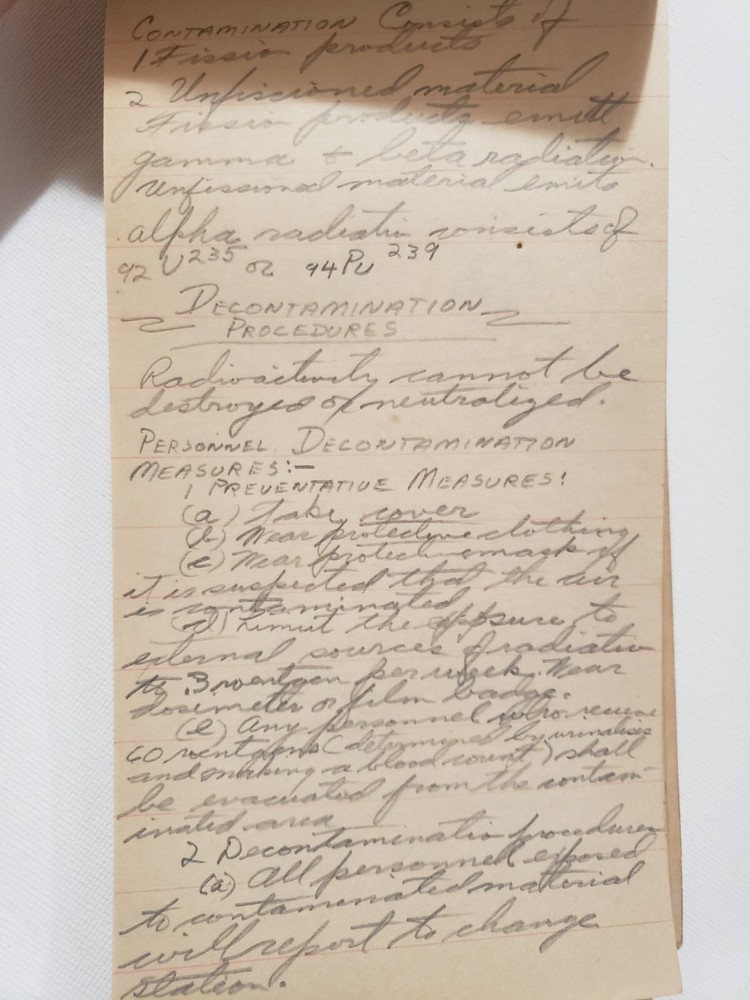 CONTAMINATION Consists of
1 Fission products
2 Unfiscioned material
Fission products emitt
gamma + beta radiation.
Unfissioned material emits
alpha radiation consists of
92 U 235 or 94 Pu 239
DECONTAMINATION
PROCEDURES
Radioactivity cannot be
destroyed or neutralized.
PERSONNEL DECONTAMINATION
MEASURES:-
1 PREVENTATIVE MEASURES:
(a) Take cover
(b) Wear protective clothing
(c) Wear protective mask if
it is suspected that the air
is contaminated
(d) Limit the exposure to
external sources of radiation
to .3 roentgen per week. Wear
dosimeter or film badge.
(e) Any personnel who receive
60 roentgens (determined by urinalisis
and making a blood count) shall
be evacuated from the contam-
inated area
2 Decontamination procedures
(a) All personnel exposed
to contaminated material
will report to change
station.